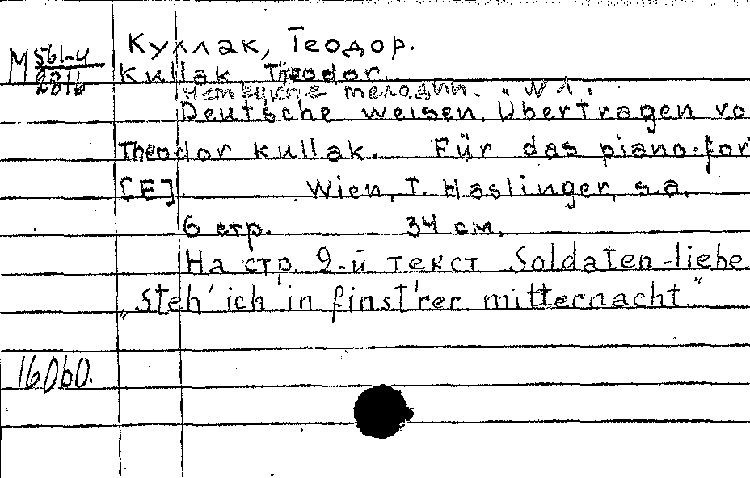 Куллак, Теодор.
М 561-4
2816
Kullak Theodor.
Немецкие мелодии. №1.
Deutsche weisen. Übertragen vo
Theodor Kullak. Für das piano-for
[E] Wien, T. Haslinger, s.a.
6 стр. 34 см.
На стр. 2-й текст Soldaten-liebe
„Steh' ich in finst'rer mitternacht"
16060.